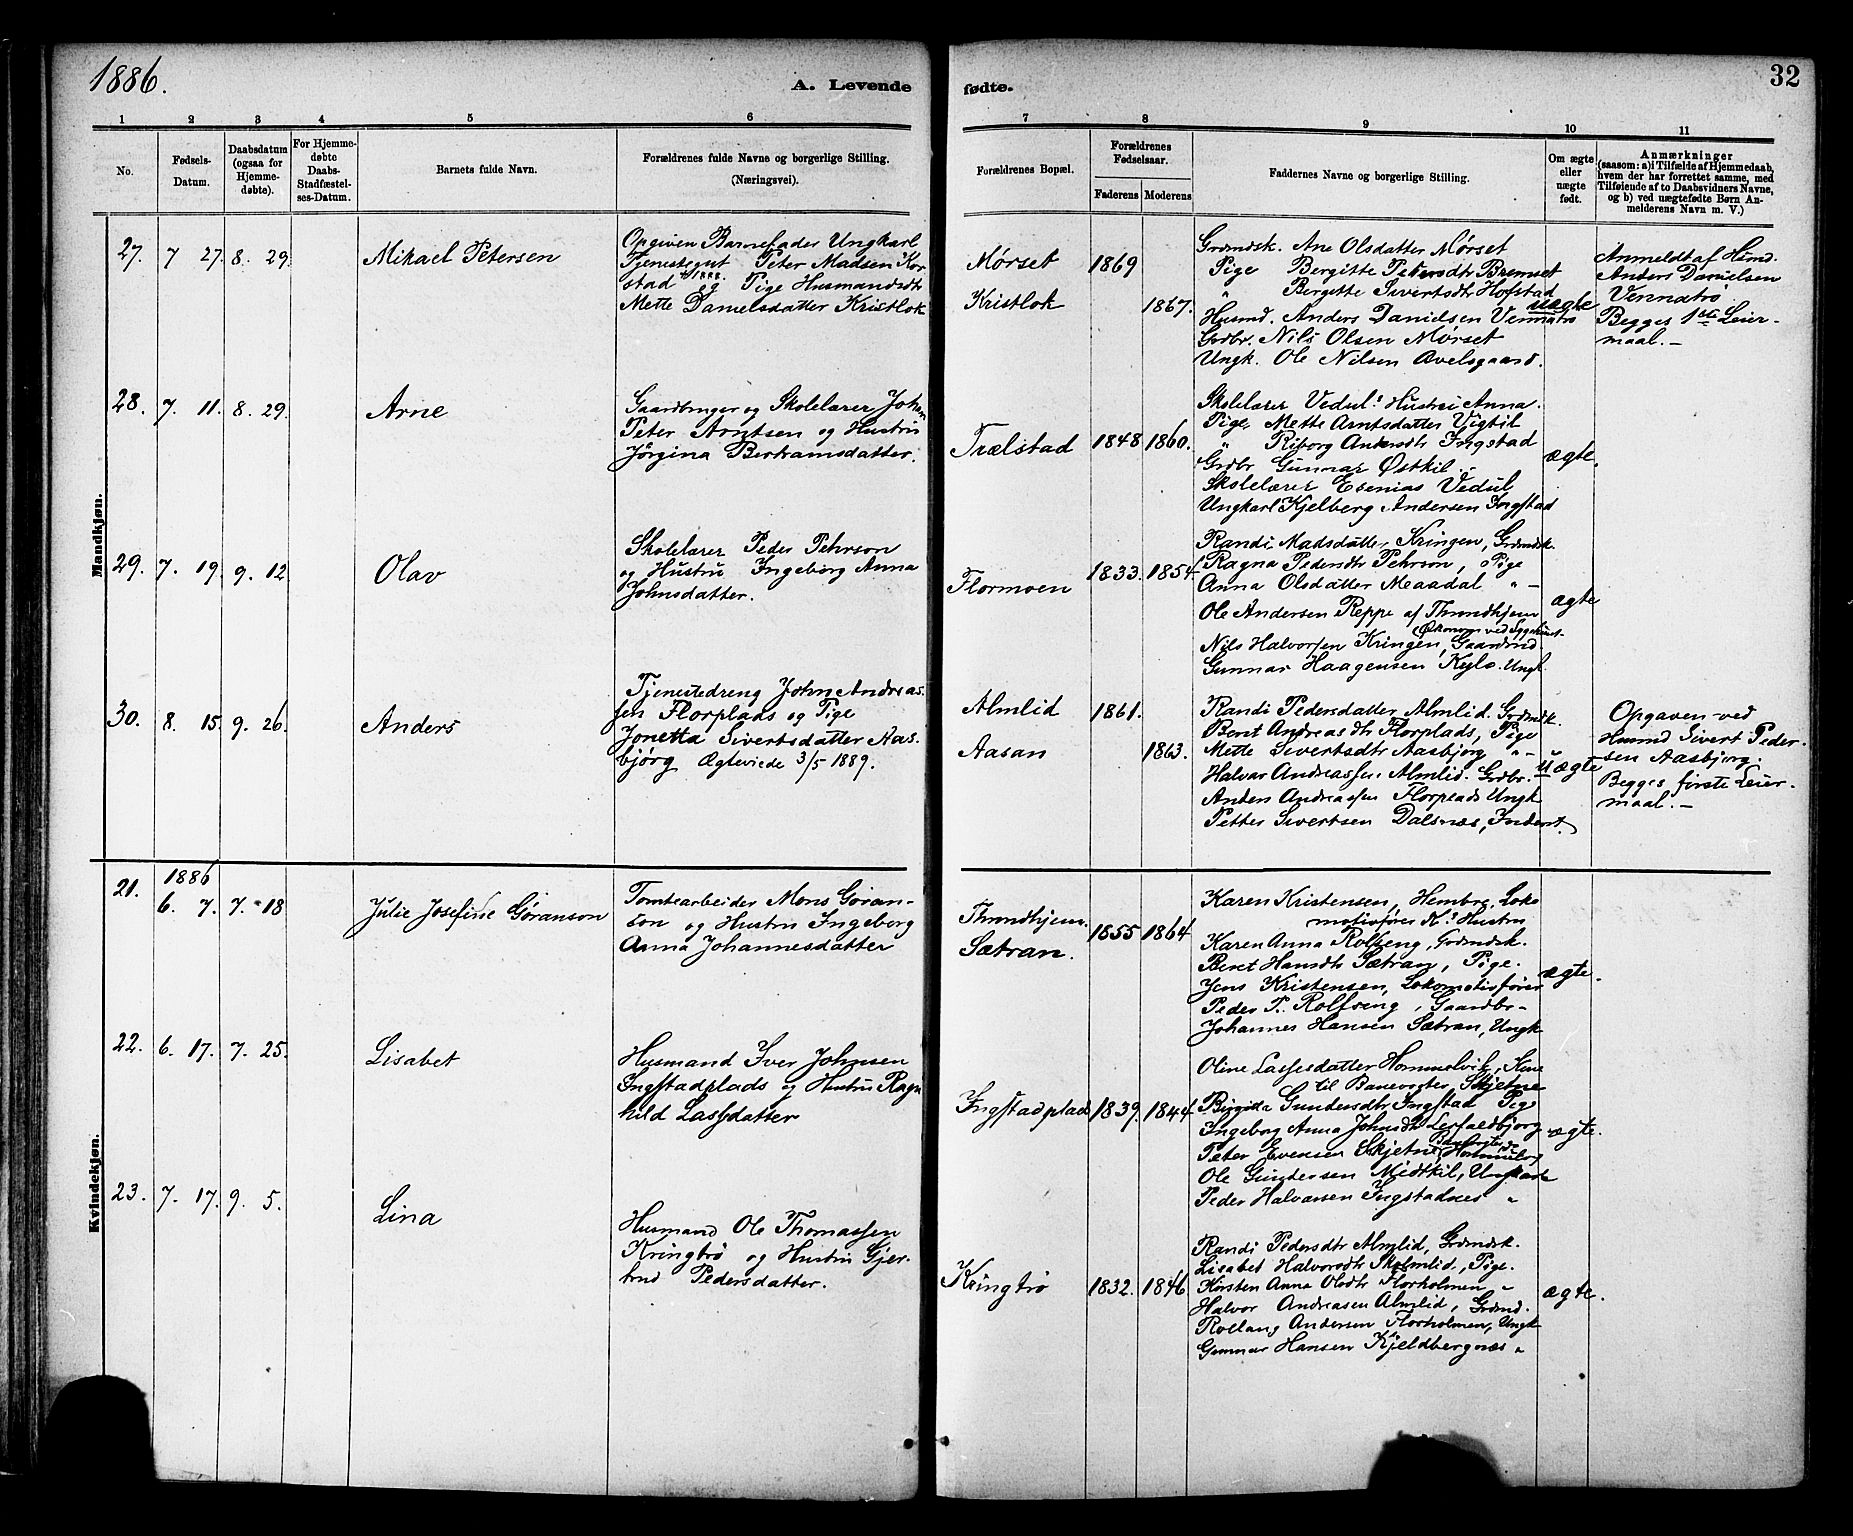 1886.
A. Levende
fødte.
32
1 2 3 4 5 6 7 8 9 10 11
No.
Fødsels-
Datum.
Daabsdatum
(ogsaa for
Hjemme-
døbte).
For Hjemme-
døbte
Daabs-
Stadfæstel-
ses-Datum.
Barnets fulde Navn.
Forældrenes fulde Navne og borgerlige Stilling.
(Næringsvei).
Forældrenes Bopæl.
Forældrenes
Fødselsaar.
Faderens Moderens
Faddernes Navne og borgerlige Stilling.
Om ægte
eller
uægte
født.
Anmærkninger
(saasom: a) i Tilfælde af Hjemmedaab,
hvem der har forrettet samme, med
Tilføiende af to Daabsvidners Navne,
og b) ved uægtefødte Børn An-
melderens Navn m. V.)
Mandkjøn.
27. 7 27. 8. 29.
Mikael Petersen
Opgiven Barnefader Ungkarl
Tjenestegut Peter Madsen Kor-
stad og Pige Husmandsdtr
Mette Danielsdatter Kristlok
Mørset 1869
Kristlok 1867.
Grdmdsk. Ane Olsdatter Mørset
Pige Bergitte Petersdtr Bremset
" Bergitte Sivertsdtr Hofstad
Husmd. Anders Danielsen Vennatrø
Grdbr. Nils Olsen Mørset
Ungk. Ole Nilsen Avelsgaard.
uægte
Anmeldt af Husmd.
Anders Danielsen
Vennatrø
Begges 1ste Leier-
maal. -
28. 7. 11. 8. 29.
Arne
Gaardbruger og Skolelærer Johan
Peter Arntsen og Hustru
Jörgina Bertramsdatter.
Trælstad 1848 1860.
Skolelærer Veduls Hustru Anna.
Pige Mette Arntsdatter Vigtil
" Riborg Andersdtr Ingstad
Grdbr Gunnar Østkil.
Skolelærer Esenias Vedul
Ungkarl Kjelberg Andersen Ingstad
ægte.
29. 7. 19. 9. 12.
Olav
Skolelærer Peder Pehrson
og Hustru Ingeborg Anna
Johnsdatter.
Flormoen 1833. 1854.
Randi Madsdatter Kringen, Grdmdsk.
Ragna Pedersdtr Pehrson, Pige
Anna Olsdatter Meaadal " -
Ole Andersen Reppe af Throndhjem
Økonom ved Sygehuset-
Nils Halvorsen Kringen, Gaardmd.
Gunnar Haagensen Kylo. Ungk.
ægte
30. 8. 15. 9. 26.
Anders
Tjenestedreng John Andreas-
sen Florplads og Pige
Jonetta Sivertsdatter Aas-
bjørg Ægteviede 3/5 1889.
Almlid 1861.
Aasan 1863.
Randi Pedersdatter Almlid. Grdmdk.
Beret Andreasdtr Florplads, Pige
Mette Sivertsdtr Aasbjørg " -
Halvar Andreassen Almlid. Grdbr.
Anders Andreassen Florplads Ungk
Petter Sivertsen Dalsnæs, Inderst.
uægte
Opgaven ved
Husmd Sivert Peder-
sen Aasbjørg.
Begges første Leier-
maal. -
Kvindekjøn.
1886
21. 6. 7. 7. 18
Julie Josefine Göranson
Tomtearbeider Mons Göran-
son og Hustru Ingeborg
Anna Johannesdatter
Throndhjem.
Sætran. 1855 1864
Karen Kristensen, Hembre, Loko
motivførers K.s Hustru
Karen Anna Rolfseng, Grdmdsk.
Beret Hansdtr Sætran, Pige.
Jens Kristensen, Lokomotivfører
Peder P. Rolfseng, Gaardbr-
Johannes Hansen Sætran, Ungk
ægte.
22. 6. 17. 7. 25.
Lisabet
Husmand Iver Johnsen
Ingstadplads og Hustru Ragn
hild Lassesdatter
Ingstadplads 1839. 1844.
Oline Lassesdatter Hommelvik, Kone
til Banevogter Skjetne
Birgitta Gundersdtr Ingstad Pige
Ingeborg Anna Johnsdtr Lerfaldbjørg
Peter Evensen Skjetne Banevogter Hommelvig
Ole Gundersen Midtkil, Ungkarl
Peder Halvorsen Ingstadnes "
ægte.
23. 7. 17. 9. 5.
Lina
Husmand Ole Thomassen
Kringtrø og Hustru Gjer-
trud Pedersdatter.
Kringtrø 1832. 1846
Randi Pedersdtr Almlid, Grdmdsk.
Lisabet Halvorsdtr Skolmlid, Pige.
Kirsten Anna Olsdtr Florholmen "
Halvor Andreasen Almlid, Grdmd.
Rollaug Andersen Florholmen, Ungk
Gunnar Hansen Kjeldbergnæs "
ægte.